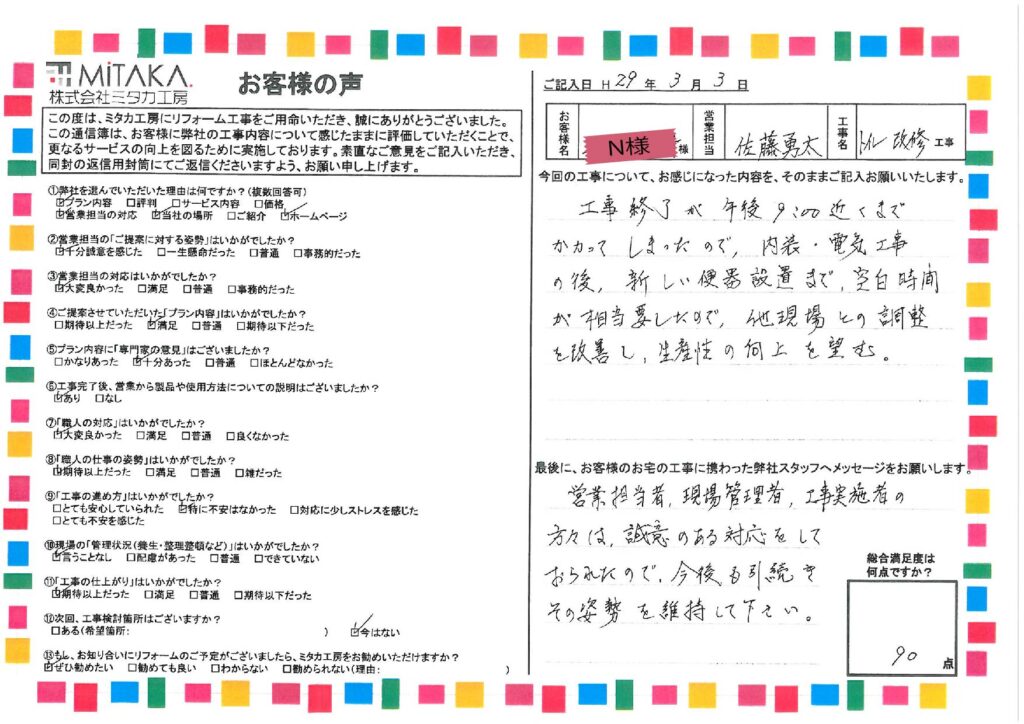 MiTAKA.
株式会社ミタカ工房
お客様の声
この度は、ミタカ工房にリフォーム工事をご用命いただき、誠にありがとうございました。
この通信簿は、お客様に弊社の工事内容について感じたままに評価していただくことで、
更なるサービスの向上を図るために実施しております。素直なご意見をご記入いただき、
同封の返信用封筒にてご返信くださいますよう、お願い申し上げます。
①弊社を選んでいただいた理由は何ですか?(複数回答可)
☑プラン内容 □評判 □サービス内容 □価格
☑営業担当の対応 ☑当社の場所 □ご紹介 ☑ホームページ
②営業担当の「ご提案に対する姿勢」はいかがでしたか?
☑十分誠意を感じた □一生懸命だった □普通 □事務的だった
③営業担当の対応はいかがでしたか?
☑大変良かった □満足 □普通 □事務的だった
④ご提案させていただいた「プラン内容」はいかがでしたか?
□期待以上だった ☑満足 □普通 □期待以下だった
⑤プラン内容に「専門家の意見」はございましたか?
□かなりあった ☑十分あった □普通 □ほとんどなかった
⑥工事完了後、営業から製品や使用方法についての説明はございましたか?
☑あり □なし
⑦「職人の対応」はいかがでしたか?
☑大変良かった □満足 □普通 □良くなかった
⑧「職人の仕事の姿勢」はいかがでしたか?
☑期待以上だった □満足 □普通 □雑だった
⑨「工事の進め方」はいかがでしたか?
□とても安心していられた ☑特に不安はなかった □対応に少しストレスを感じた
□とても不安を感じた
⑩現場の「管理状況(養生・整理整頓など)」はいかがでしたか?
☑言うことなし □配慮があった □普通 □できていない
⑪「工事の仕上がり」はいかがでしたか?
☑期待以上だった □満足 □普通 □期待以下だった
⑫次回、工事検討箇所はございますか?
□ある(希望箇所: ) ☑今はない
⑬もし、お知り合いにリフォームのご予定がございましたら、ミタカ工房をお勧めいただけますか?
☑ぜひ勧めたい □勧めても良い □わからない □勧められない(理由: )
ご記入日 H 29 年 3 月 3 日
お客様名 N様 様 営業担当 佐藤勇太 工事名 トイレ改修 工事
今回の工事について、お感じになった内容を、そのままご記入お願いいたします。
工事終了が午後9:00近くまで
かかってしまったので、内装・電気工事
の後、新しい便器設置まで、空白時間
が相当要したので、他現場との調整
を改善し、生産性の向上を望む。
最後に、お客様のお宅の工事に携わった弊社スタッフへメッセージをお願いします。
営業担当者、現場管理者、工事実施者の
方々は、誠意のある対応をして
おられたので、今後も引続き
その姿勢を維持して下さい。
総合満足度は
何点ですか?
90 点